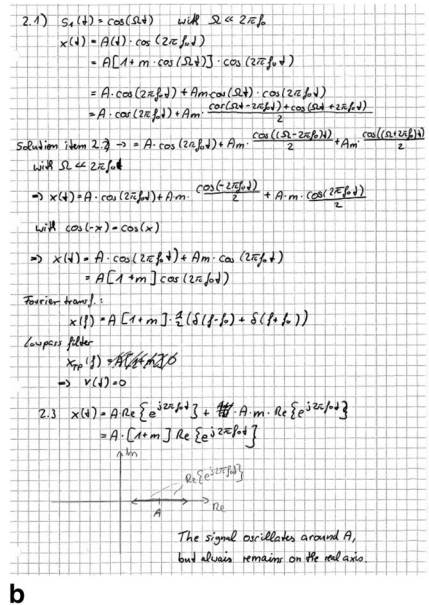 2.1) S₁(t) = cos(Ωt) with Ω ≪ 2πf₀
x(t) = A(t) · cos(2πf₀t)
= A[1 + m · cos(Ωt)] · cos(2πf₀t)
= A · cos(2πf₀t) + Am cos(Ωt) · cos(2πf₀t)
= A · cos(2πf₀t) + Am · (cos(Ωt - 2πf₀t) + cos(Ωt + 2πf₀t))/2
Solution item 2.2 → = A · cos(2πf₀t) + Am · cos((Ω - 2πf₀)t)/2 + Am · cos((Ω + 2πf₀)t)/2
with Ω ≪ 2πf₀
⇒ x(t) = A · cos(2πf₀t) + Am · cos(-2πf₀t)/2 + A · m · cos(2πf₀t)/2
with cos(-x) = cos(x)
⇒ x(t) = A · cos(2πf₀t) + Am · cos(2πf₀t)
= A[1 + m] cos(2πf₀t)
Fourier transf.:
x(f) = A[1 + m] · 1/2 (δ(f - f₀) + δ(f + f₀))
Lowpass filter
X_TP(f) = 0
⇒ v(t) = 0
2.3 x(t) = A · Re{e^{j2πf₀t}} + A · m · Re{e^{j2πf₀t}}
= A · [1 + m] Re{e^{j2πf₀t}}
Im
Re{e^{j2πf₀t}}
Re
A
The signal oscillates around A,
but alwais remains on the real axis.
b